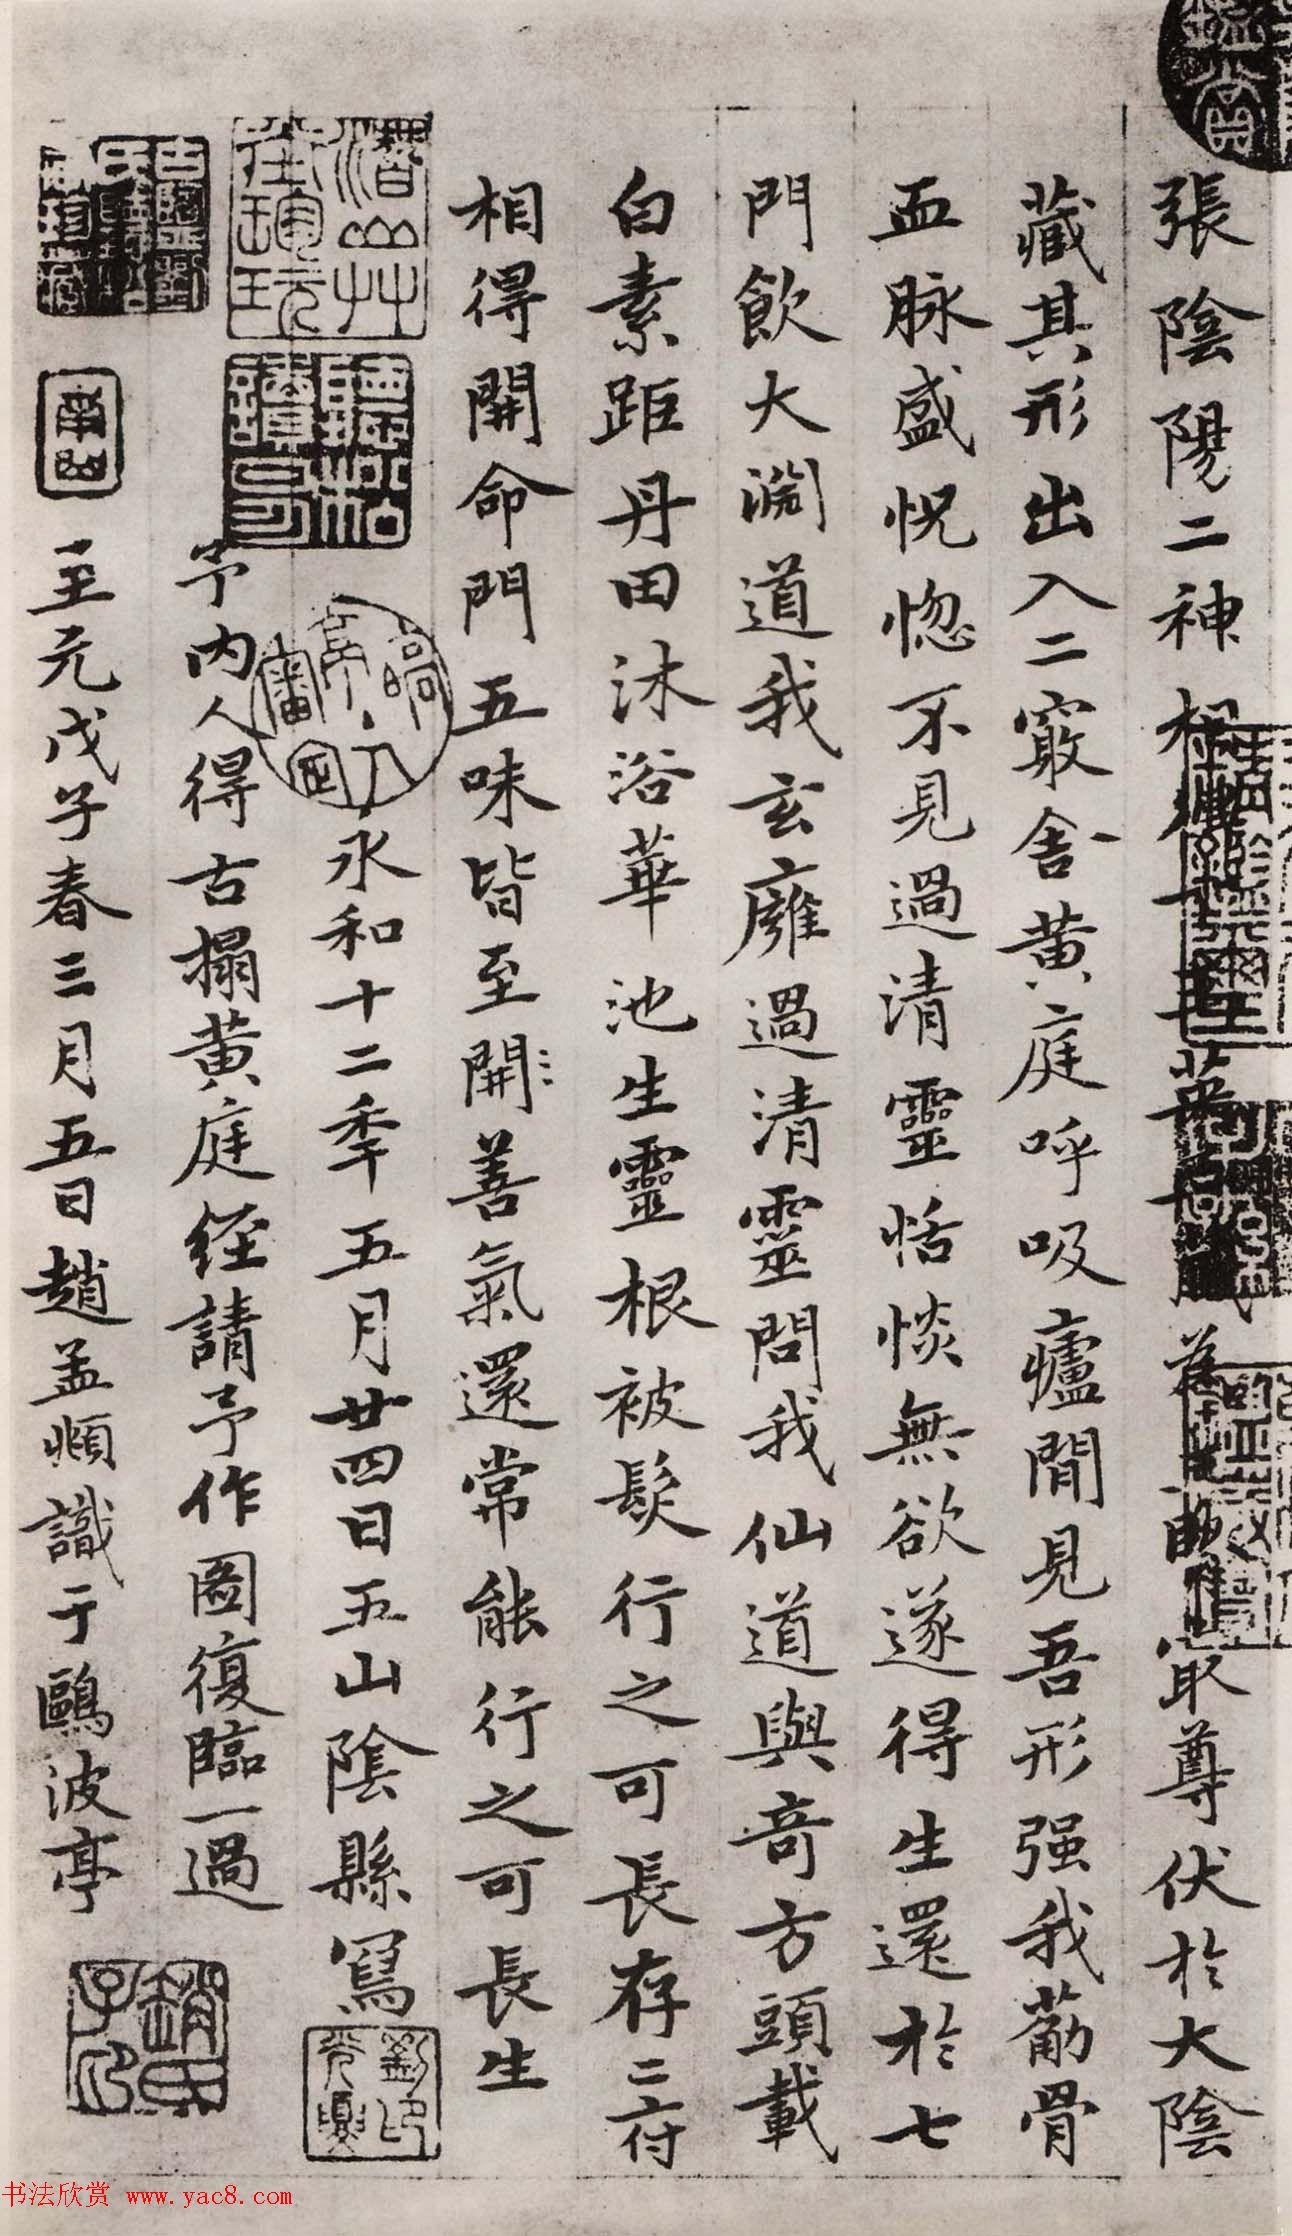 張陰陽二神相 最尊伏於大陰
藏其形出入二竅舍黄庭呼吸廬間見吾形强我筋骨
血脉盛怳惚不見過清靈恬惔無欲遂得生還於七
門飲大淵道我玄廱過清靈問我仙道與奇方頭載
白素距丹田沐浴華池生靈根被髮行之可長存二府
相得開命門五味皆至開〻善氣還常能行之可長生
永和十二季五月廿四日五山陰縣寫
予内人得古搨黄庭經請予作圖復臨一過
至元戊子春三月五日趙孟頫識于鷗波亭
趙氏子昂
书法欣赏 www.yac8.com